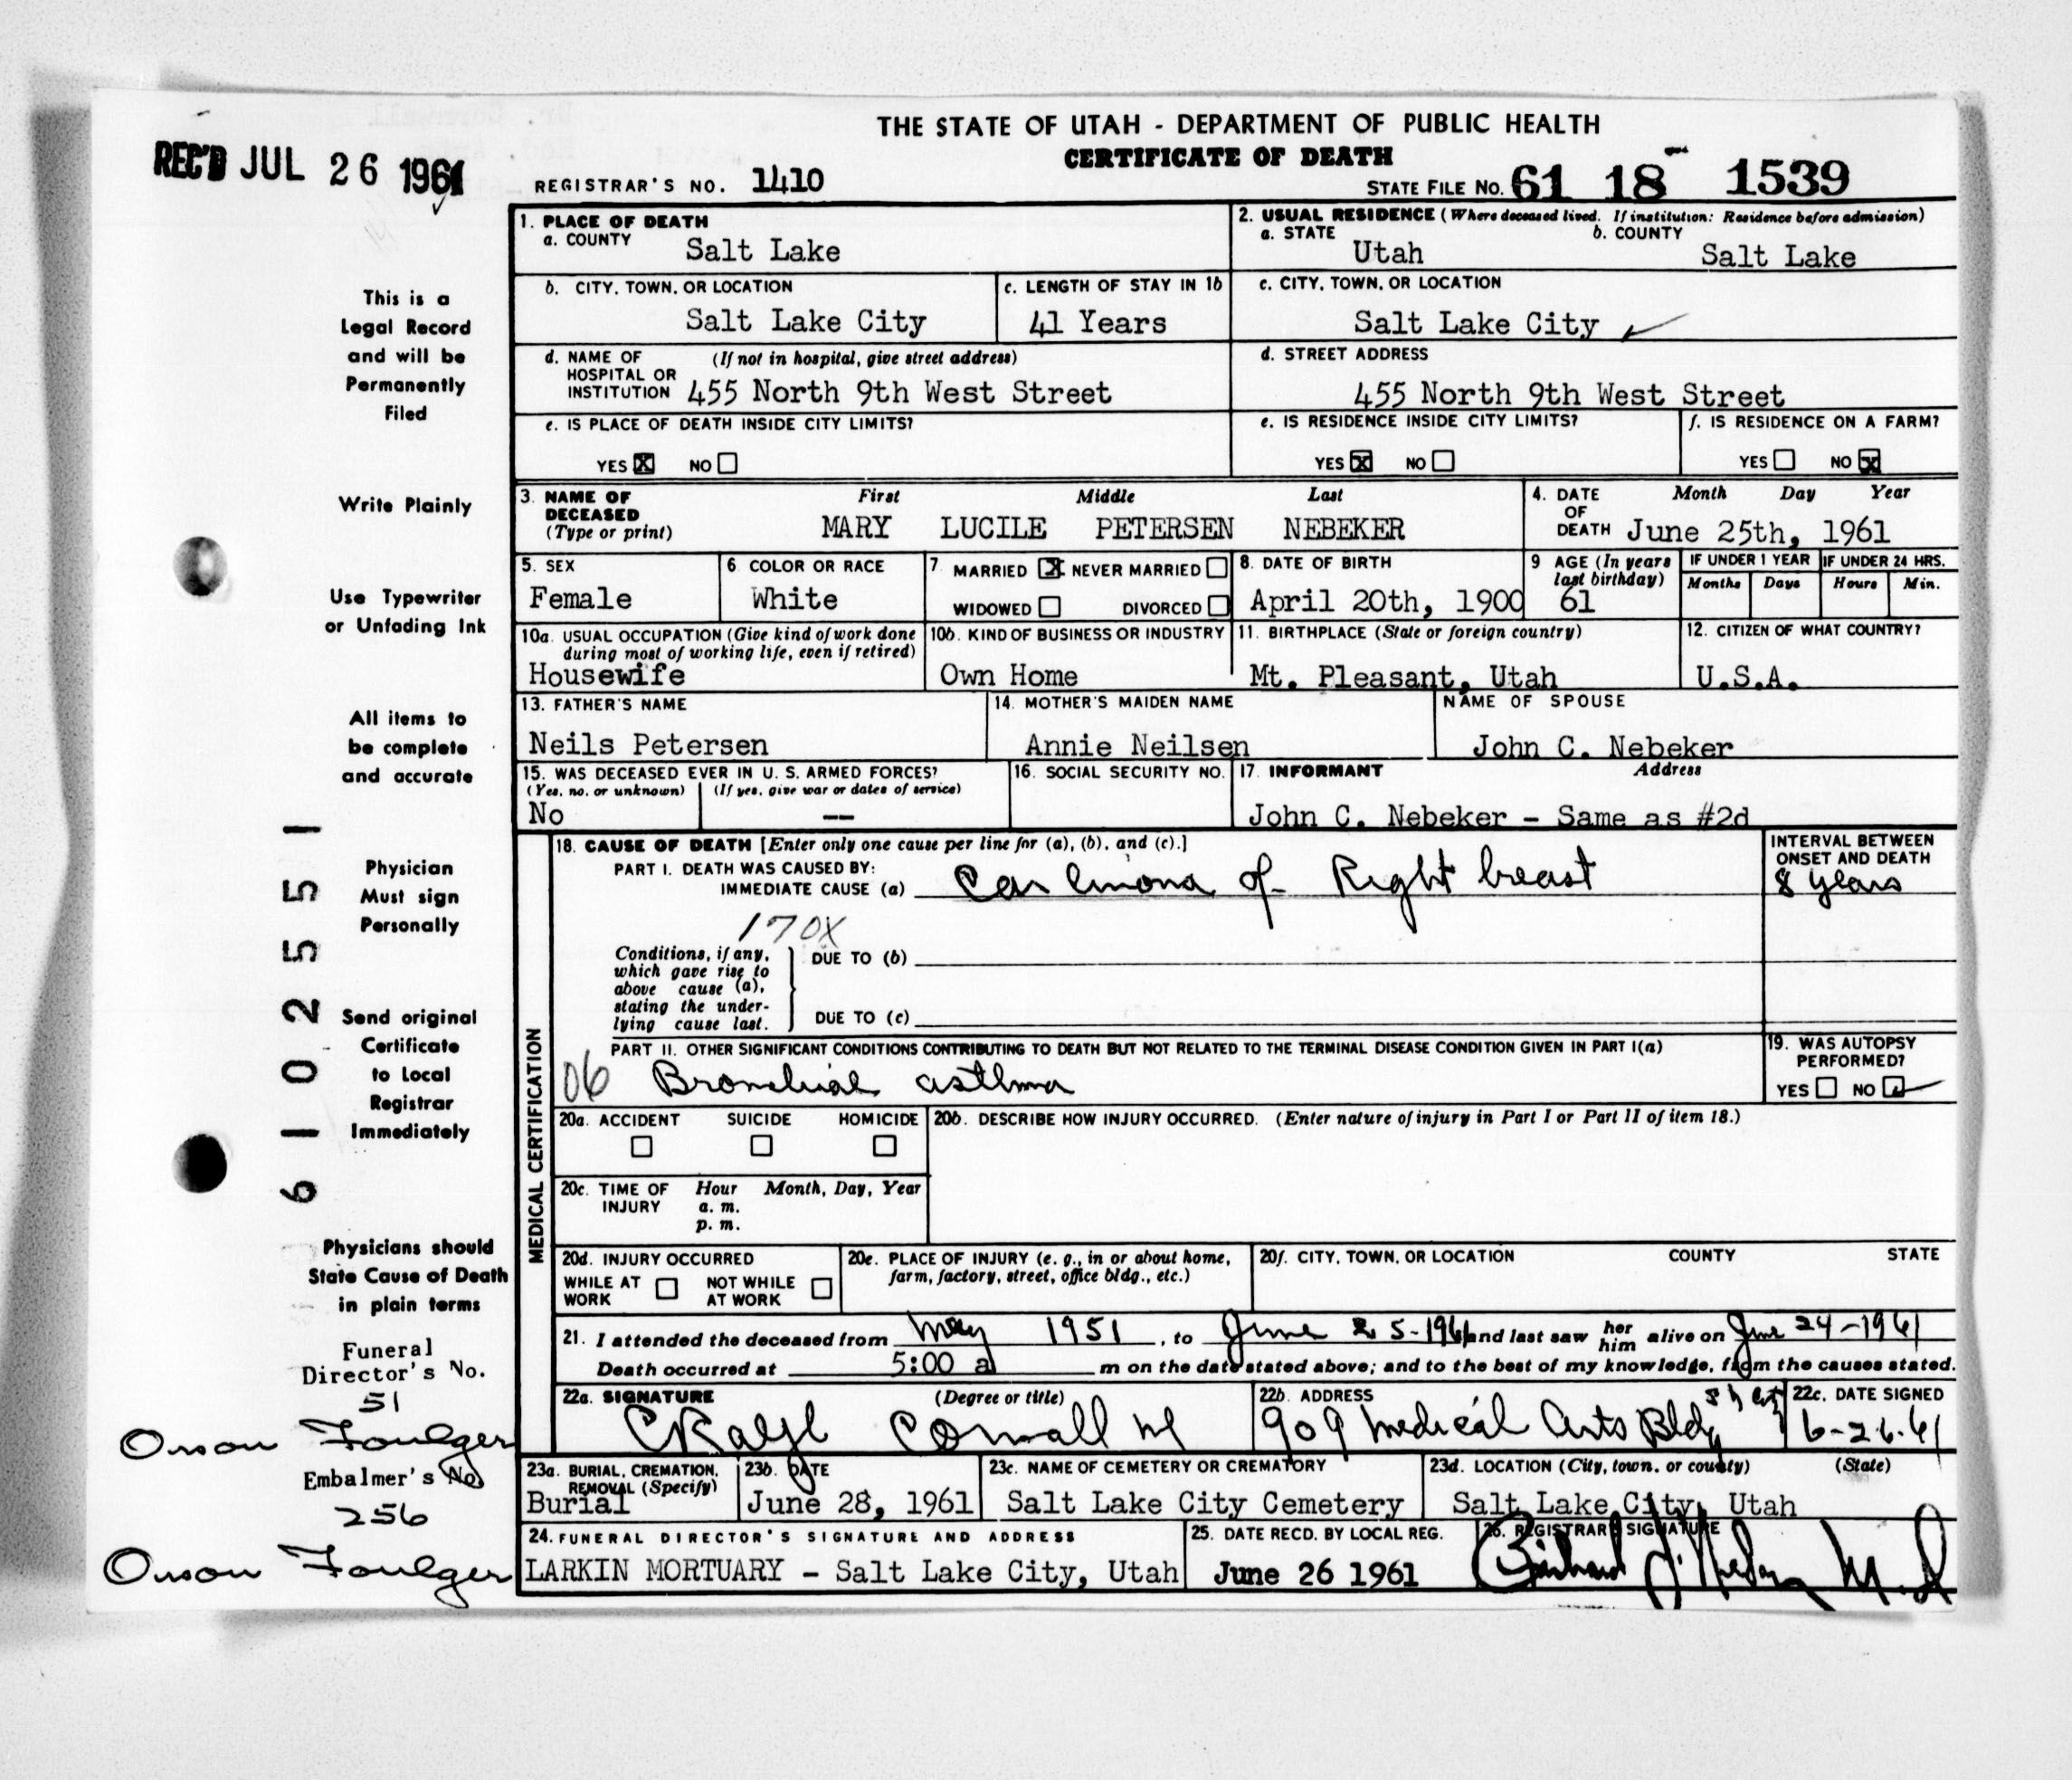 THE STATE OF UTAH - DEPARTMENT OF PUBLIC HEALTH
CERTIFICATE OF DEATH
REC'D JUL 26 1961
REGISTRAR'S NO. 1410
STATE FILE NO. 61 18 1539
This is a
Legal Record
and will be
Permanently
Filed
Write Plainly
Use Typewriter
or Unfading Ink
All items to
be complete
and accurate
Physician
Must sign
Personally
Send original
Certificate
to Local
Registrar
Immediately
Physicians should
State Cause of Death
in plain terms
Funeral
Director's No.
51
Orson Foulger
Embalmer's No.
256
Orson Foulger
6102551
1. PLACE OF DEATH
a. COUNTY Salt Lake
2. USUAL RESIDENCE (Where deceased lived. If institution: Residence before admission)
a. STATE Utah b. COUNTY Salt Lake
b. CITY, TOWN, OR LOCATION Salt Lake City
c. LENGTH OF STAY IN 1b 41 Years
c. CITY, TOWN, OR LOCATION Salt Lake City
d. NAME OF HOSPITAL OR INSTITUTION (If not in hospital, give street address) 455 North 9th West Street
d. STREET ADDRESS 455 North 9th West Street
e. IS PLACE OF DEATH INSIDE CITY LIMITS?
YES X NO
e. IS RESIDENCE INSIDE CITY LIMITS?
YES X NO
f. IS RESIDENCE ON A FARM?
YES NO X
3. NAME OF DECEASED (Type or print) First Middle Last
MARY LUCILE PETERSEN NEBEKER
4. DATE OF DEATH Month Day Year
June 25th, 1961
5. SEX Female
6. COLOR OR RACE White
7. MARRIED X NEVER MARRIED
WIDOWED DIVORCED
8. DATE OF BIRTH April 20th, 1900
9 AGE (In years last birthday) 61
IF UNDER 1 YEAR Months Days
IF UNDER 24 HRS. Hours Min.
10a. USUAL OCCUPATION (Give kind of work done during most of working life, even if retired)
Housewife
10b. KIND OF BUSINESS OR INDUSTRY
Own Home
11. BIRTHPLACE (State or foreign country)
Mt. Pleasant, Utah
12. CITIZEN OF WHAT COUNTRY?
U.S.A.
13. FATHER'S NAME
Neils Petersen
14. MOTHER'S MAIDEN NAME
Annie Neilsen
NAME OF SPOUSE
John C. Nebeker
15. WAS DECEASED EVER IN U. S. ARMED FORCES?
(Yes, no, or unknown) (If yes, give war or dates of service)
No --
16. SOCIAL SECURITY NO.
17. INFORMANT Address
John C. Nebeker - Same as #2d
MEDICAL CERTIFICATION
18. CAUSE OF DEATH [Enter only one cause per line for (a), (b), and (c).]
PART I. DEATH WAS CAUSED BY:
IMMEDIATE CAUSE (a) Carcinoma of Right breast
INTERVAL BETWEEN ONSET AND DEATH
8 years
170X
Conditions, if any, which gave rise to above cause (a), stating the underlying cause last.
DUE TO (b)
DUE TO (c)
PART II. OTHER SIGNIFICANT CONDITIONS CONTRIBUTING TO DEATH BUT NOT RELATED TO THE TERMINAL DISEASE CONDITION GIVEN IN PART I(a)
06 Bronchial asthma
19. WAS AUTOPSY PERFORMED?
YES NO
20a. ACCIDENT SUICIDE HOMICIDE
20b. DESCRIBE HOW INJURY OCCURRED. (Enter nature of injury in Part I or Part II of item 18.)
20c. TIME OF INJURY Hour Month, Day, Year
a. m.
p. m.
20d. INJURY OCCURRED
WHILE AT WORK NOT WHILE AT WORK
20e. PLACE OF INJURY (e. g., in or about home, farm, factory, street, office bldg., etc.)
20f. CITY, TOWN, OR LOCATION COUNTY STATE
21. I attended the deceased from May 1951, to June 25-1961 and last saw her him alive on June 24-1961
Death occurred at 5:00 a m on the date stated above; and to the best of my knowledge, from the causes stated.
22a. SIGNATURE (Degree or title)
C Ralph Cornwall
22b. ADDRESS
909 Medical Arts Bldg
22c. DATE SIGNED
6-26-61
23a. BURIAL, CREMATION, REMOVAL (Specify)
Burial
23b. DATE
June 28, 1961
23c. NAME OF CEMETERY OR CREMATORY
Salt Lake City Cemetery
23d. LOCATION (City, town, or county) (State)
Salt Lake City, Utah
24. FUNERAL DIRECTOR'S SIGNATURE AND ADDRESS
LARKIN MORTUARY - Salt Lake City, Utah
25. DATE RECD. BY LOCAL REG.
June 26 1961
26. REGISTRAR'S SIGNATURE